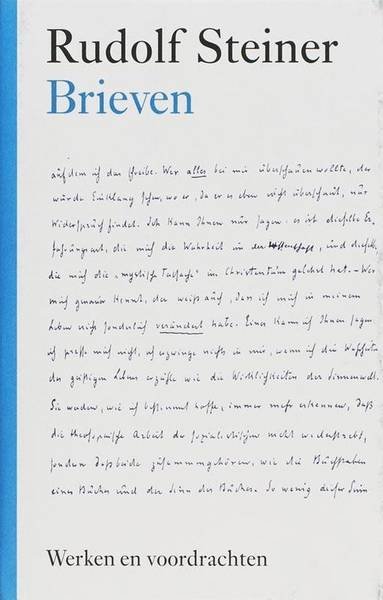 Rudolf Steiner
Brieven
auf dem ich das schreibe. Wer alles bei mir überschauen wollte, der
würde Einklang sehen, wo er, da er es eben nicht überschaut, nur
Widerspruch findet. Ich kann Ihnen nur sagen: es ist dieselbe Er-
fahrungsart, die mich die Wahrheit in der Wissenschaft, und dieselbe,
die mich die „mystische Tatsache" im Christentum gelehrt hat. – Wer
mich genauer kennt, der weiß auch, daß ich mich in meinem
Leben nicht sonderlich verändert habe. Eines kann ich Ihnen sagen:
ich presse mich nicht, ich erzwinge nichts in mir, wenn ich die Wahrheiten
des geistigen Lebens erzähle wie die Wirklichkeiten der Sinnenwelt.
Sie werden, wie ich bestimmt hoffe, immer mehr erkennen, daß
die theosophische Arbeit der sozialistischen nicht widerstrebt,
sondern daß beide zusammengehören, wie die Buchstaben
eines Buches und der Sinn des Buches. So wenig dieser Sinn
Werken en voordrachten